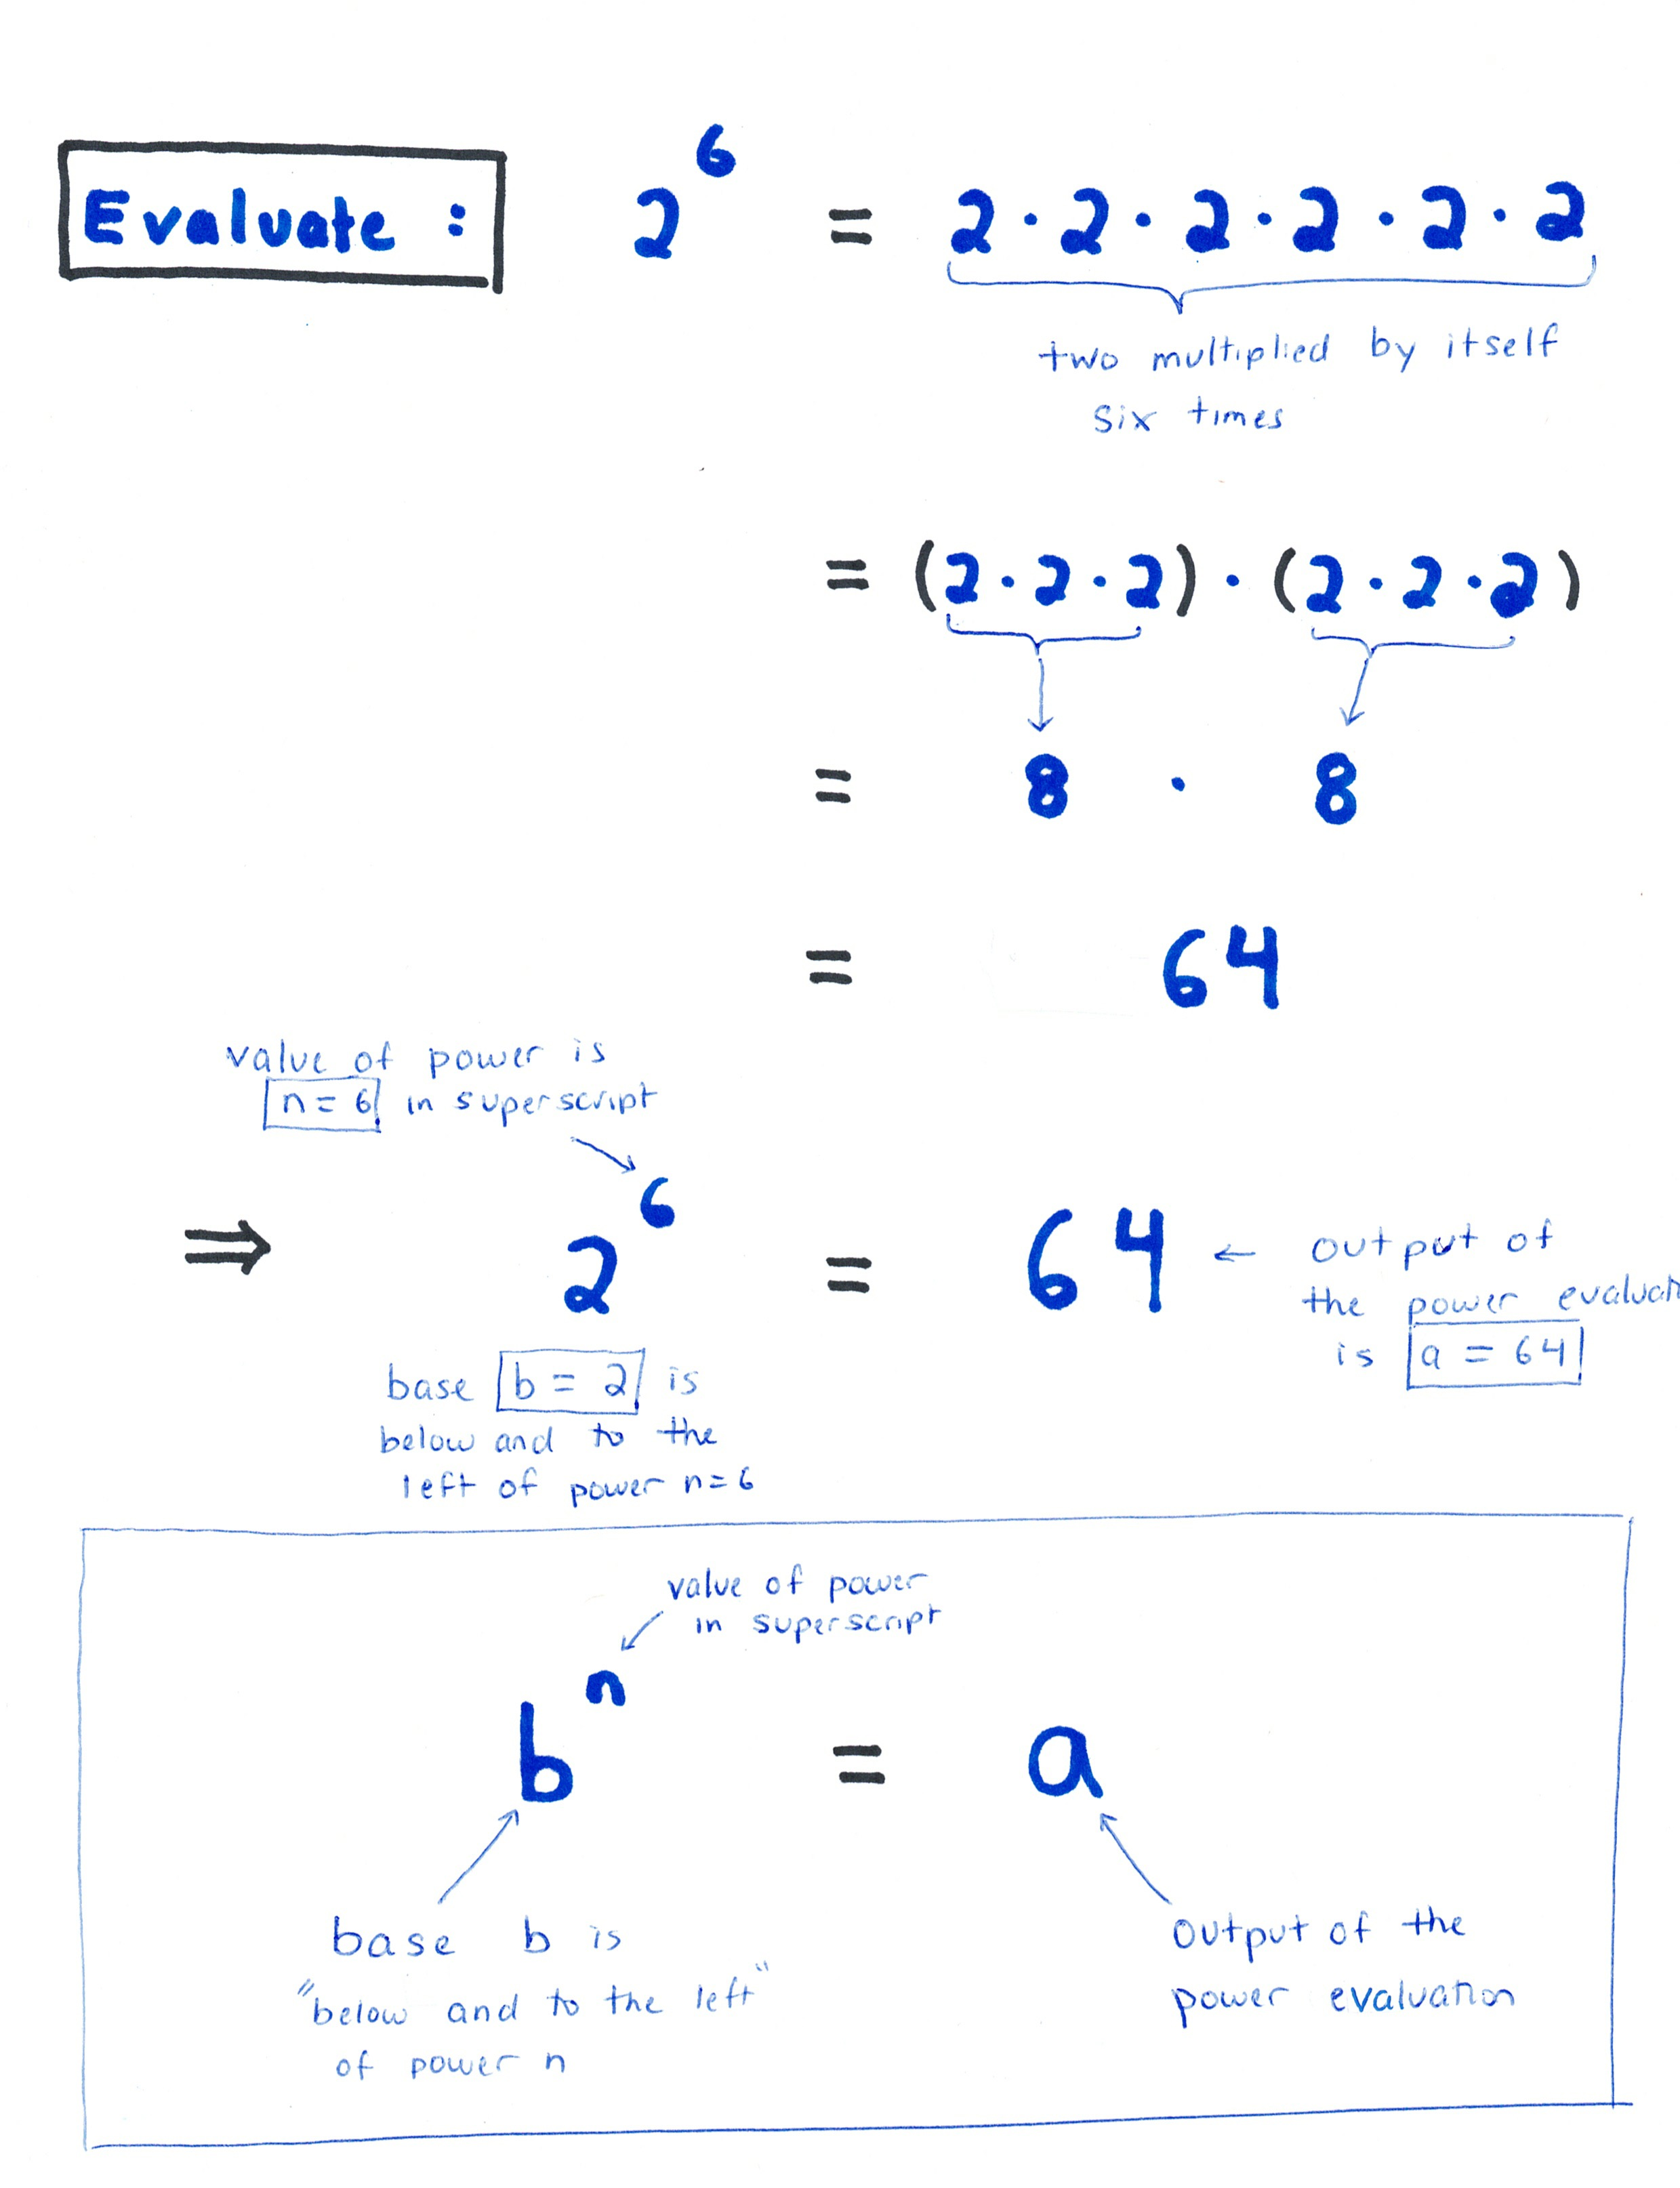 Evaluate : 2⁶ = 2 · 2 · 2 · 2 · 2 · 2
two multiplied by itself
six times
= (2 · 2 · 2) · (2 · 2 · 2)
= 8 · 8
= 64
value of power is
n = 6 in superscript
⇒ 2⁶ = 64 ← output of
the power evaluati
is a = 64
base b = 2 is
below and to the
left of power n = 6
value of power
in superscript
bⁿ = a
base b is
"below and to the left"
of power n
output of the
power evaluation